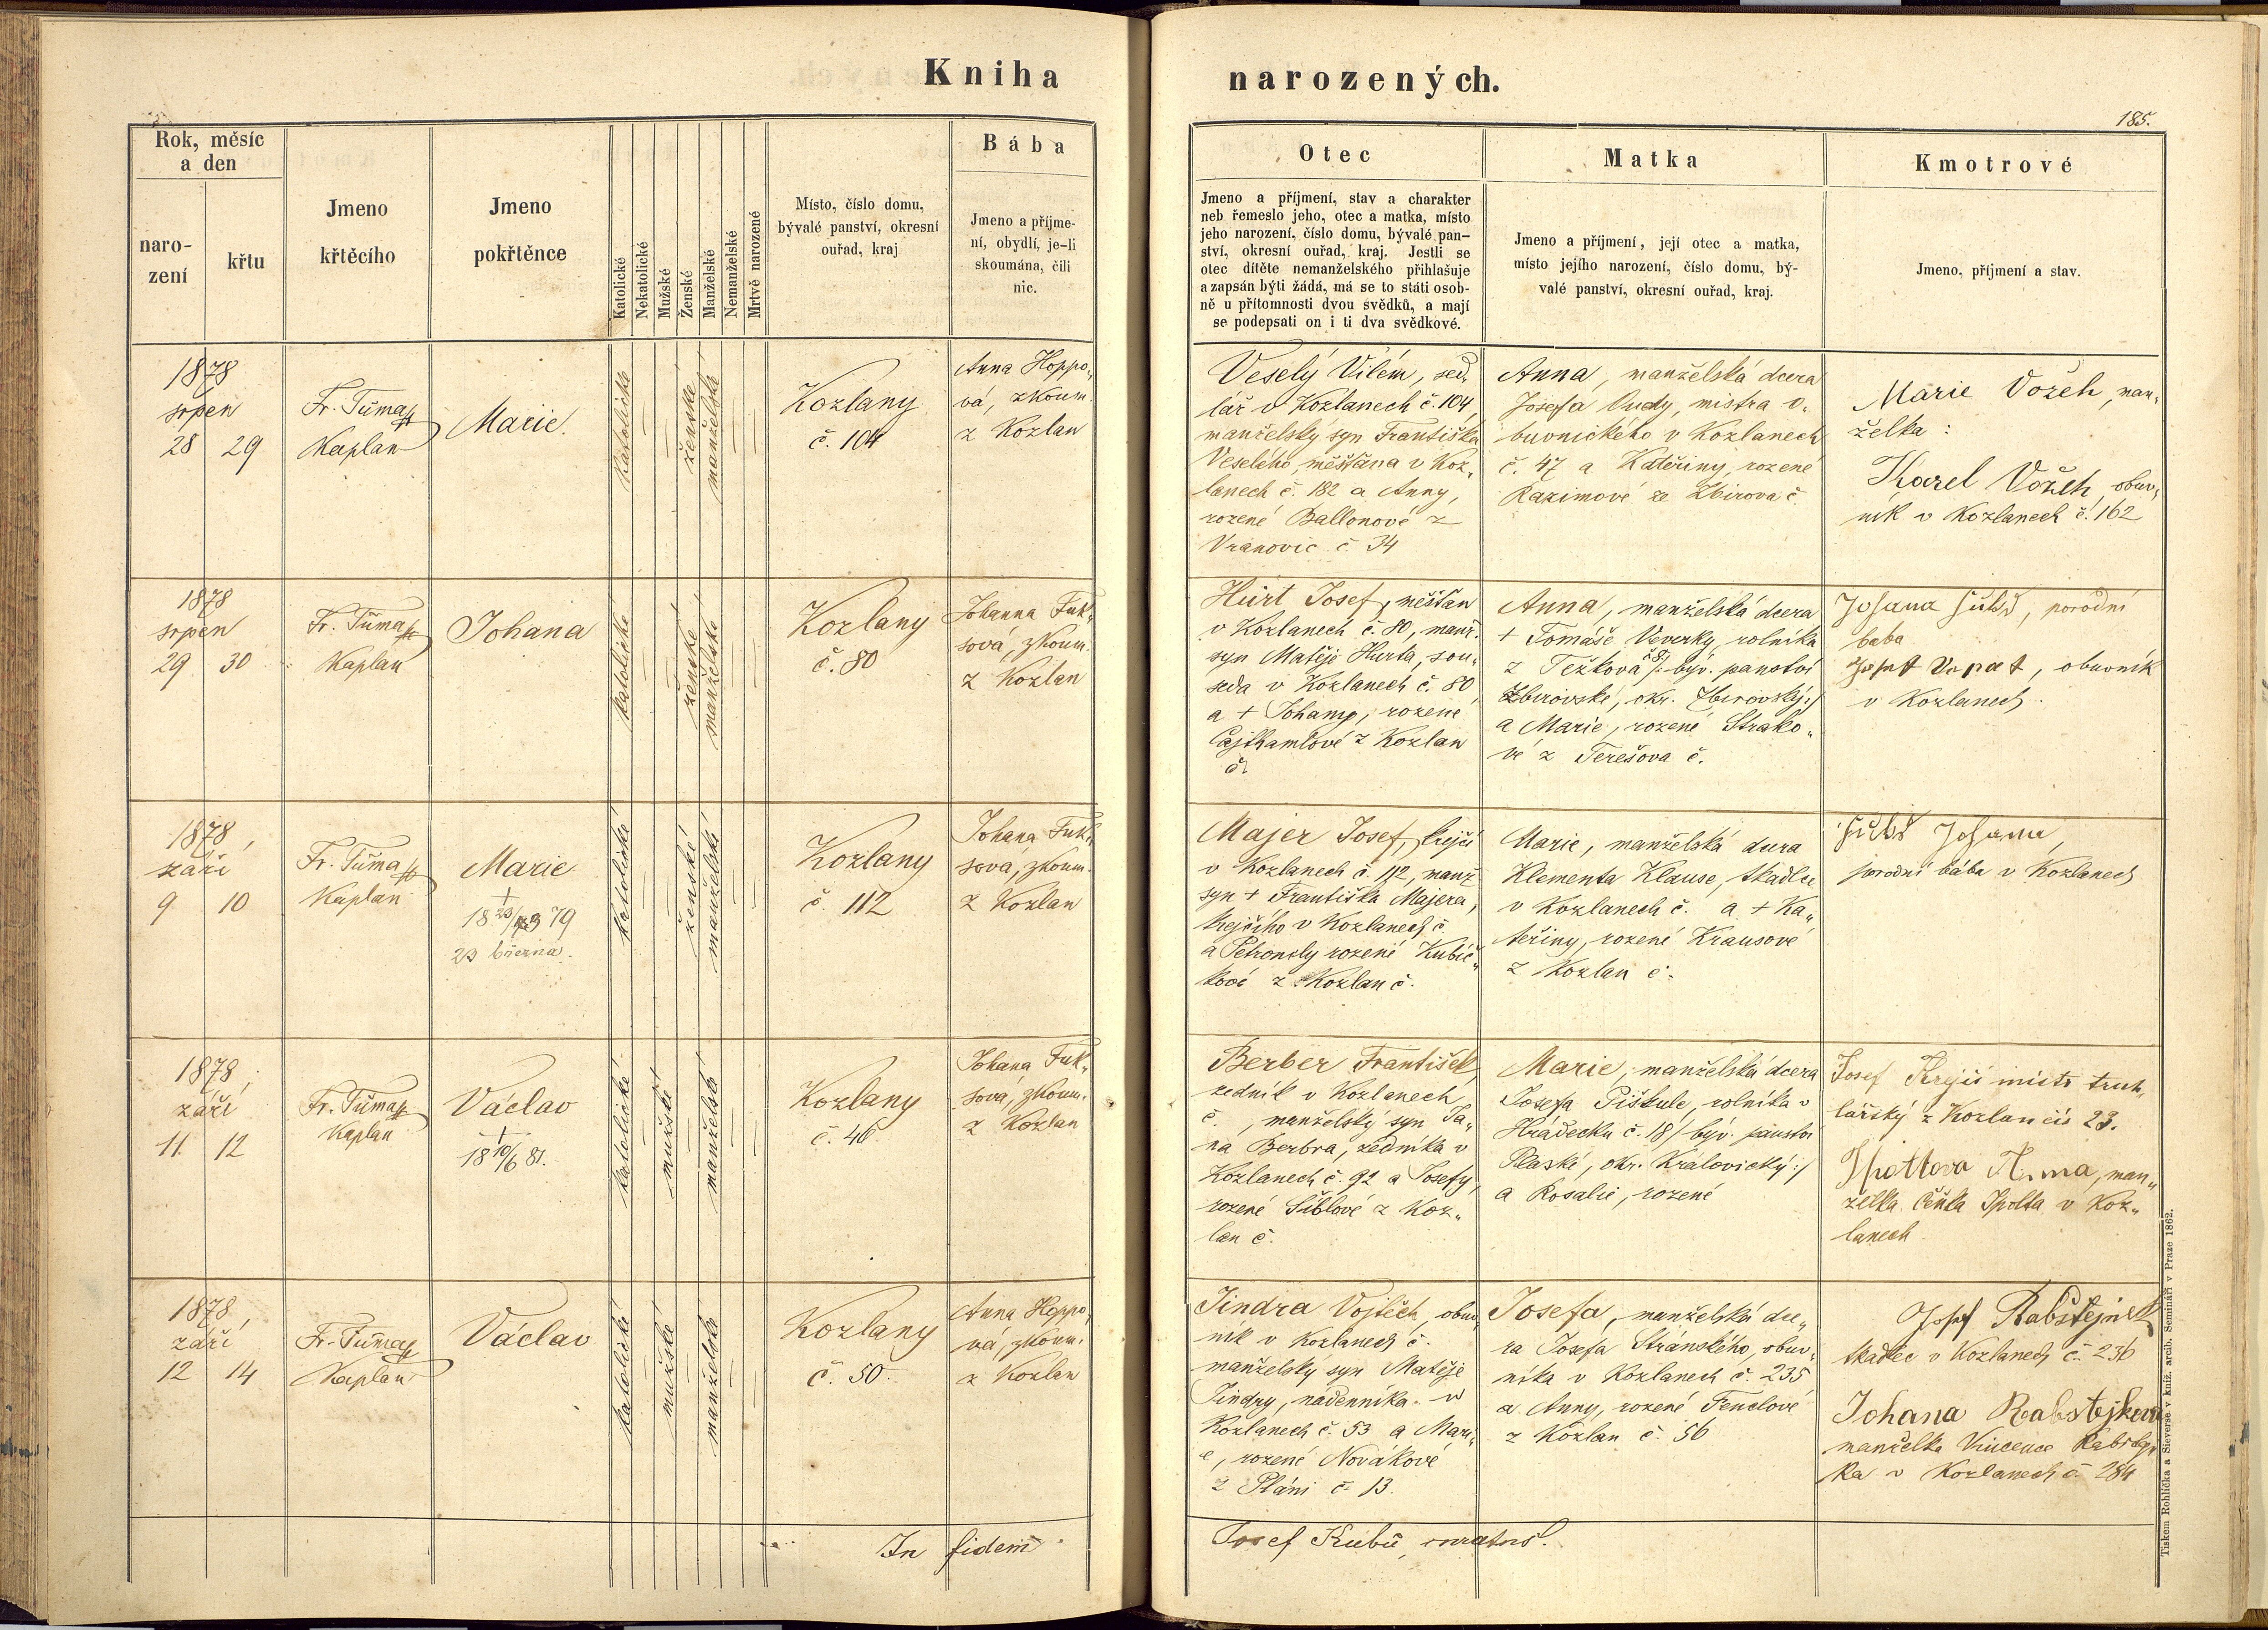 Kniha narozených.
185.
Rok, měsíc
a den
naro-
zení
křtu
Jmeno
křtěcího
Jmeno
pokřtěnce
Katolické
Nekatolické
Mužské
Ženské
Manželské
Nemanželské
Mrtvě narozené
Místo, číslo domu,
bývalé panství, okresní
ouřad, kraj
Bába
Jmeno a příjme-
ní, obydlí, je-li
skoumána, čili
nic.
Otec
Jmeno a příjmení, stav a charakter
neb řemeslo jeho, otec a matka, místo
jeho narození, číslo domu, bývalé pan-
ství, okresní ouřad, kraj. Jestli se
otec dítěte nemanželského přihlašuje
a zapsán býti žádá, má se to státi osob-
ně u přítomnosti dvou svědků, a mají
se podepsati on i ti dva svědkové.
Matka
Jmeno a příjmení, její otec a matka,
místo jejího narození, číslo domu, bý-
valé panství, okresní ouřad, kraj.
Kmotrové
Jmeno, příjmení a stav.
1878
srpen
28 29
Fr. Tůma
Kaplan
Marie.
katolické
ženské
manželské
Kozlany
č. 104
Anna Hoppo„
vá, zkoum.
z Kozlan
Veselý Vilém, sed„
lář v Kozlanech č. 104,
manželský syn Františka
Veselého, měšťana v Koz„
lanech č. 182 a Anny,
rozené Ballonové z
Vranovic č. 34
Anna, manželská dcera
Josefa Oudy, mistra o„
buvnického v Kozlanech
č. 47 a Kateřiny, rozené
Razimové ze Zbirova č.
Marie Vožeh, man„
želka:
Karel Vožeh, obuv„
ník v Kozlanech č. 162
1878
srpen
29 30
Fr. Tůma
Kaplan
Johana
katolické
ženské
manželské
Kozlany
č. 80
Johanna Fuk„
sová, zkoum.
z Kozlan
Hurt Josef, měšťan
v Kozlanech č. 80, manž.
syn Matěje Hurta, sou„
seda v Kozlanech č. 80,
a + Johany, rozené
Cajthamlové z Kozlan
č.
Anna, manželská dcera
+ Tomáše Veverky, rolníka
z Težkova č 8 /: býv. panství
Zbirovské, okr. Zbirovský :/
a Marie, rozené Strako„
vé z Terešova č.
Johana Fuchs, porodní
baba
Josef Vopat, obuvník
v Kozlanech.
1878,
září
9 10
Fr. Tůma
Kaplan
Marie
+
18 23/3 79
23 března.
katolické
ženské
manželské
Kozlany
č. 112
Johana Fuk„
sová, zkoum.
z Kozlan
Majer Josef, krejčí
v Kozlanech č. 112, manž.
syn + Františka Majera,
krejčího v Kozlanech č.
a Petronily rozené Kubíč„
kové z Kozlan č.
Marie, manželská dcera
Klementa Klause, tkadlce
v Kozlanech č. a + Ka„
teřiny, rozené Krausové
z Kozlan č.
Fuchs Johana,
porodní bába v Kozlanech
1878,
září
11. 12
Fr. Tůma
Kaplan
Václav
+
18 10/6 81.
katolické
mužské
manželské
Kozlany
č. 46
Johana Fuk„
sová, zkoum.
z Kozlan
Berber František,
zedník v Kozlanech
č. , manželský syn Ja„
na Berbra, zedníka v
Kozlanech č. 92 a Josefy,
rozené Šiblové z Koz„
lan č.
Marie, manželská dcera
Josefa Piškule, rolníka v
Hrádecku č. 18 /: býv. panství
Plaské, okr. Královický :/
a Rosalie, rozené
Josef Krejči mistr truh„
lářský z Kozlan čís 23.
Spottova Anna, man„
želka Čeňka Spolta v Koz„
lanech
1878,
září
12 14
Fr. Tůma
Kaplan
Václav
katolické
mužské
manželské
Kozlany
č. 50.
Anna Hoppo„
vá, zkoum.
z Kozlan
Jindra Vojtěch, obuv„
ník v Kozlanech č.
manželský syn Matěje
Jindry, nádenníka v
Kozlanech č. 53 a Mari„
e, rozené Novákové
z Pláni č. 13.
Josefa, manželská dce„
ra Josefa Stránského, obuv„
níka v Kozlanech č. 235
a Anny, rozené Fenclové
z Kozlan č. 56
Josef Rabštejnek
tkadlec v Kozlanech č. 236
Johana
manželka Vincence
ka v Kozlanech č. 284
In fidem
Josef Kubů, curatus.
Tiskem Rohlíčka a Sieverse v kníž. arcib. Semináři v Praze 1862.